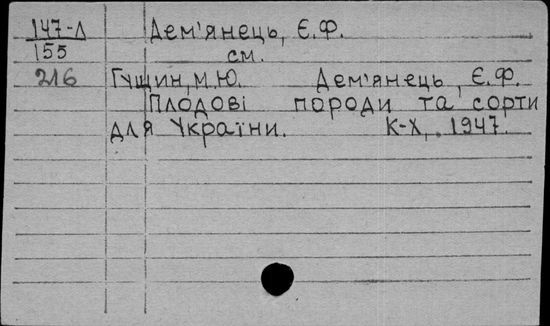 147-Д Дем'янець, Є.Ф.
155 см.
216 Гущин, М.Ю. Дем'янець, Є.Ф.
Плодові породи та сорти
для України. К-Х, 1947.